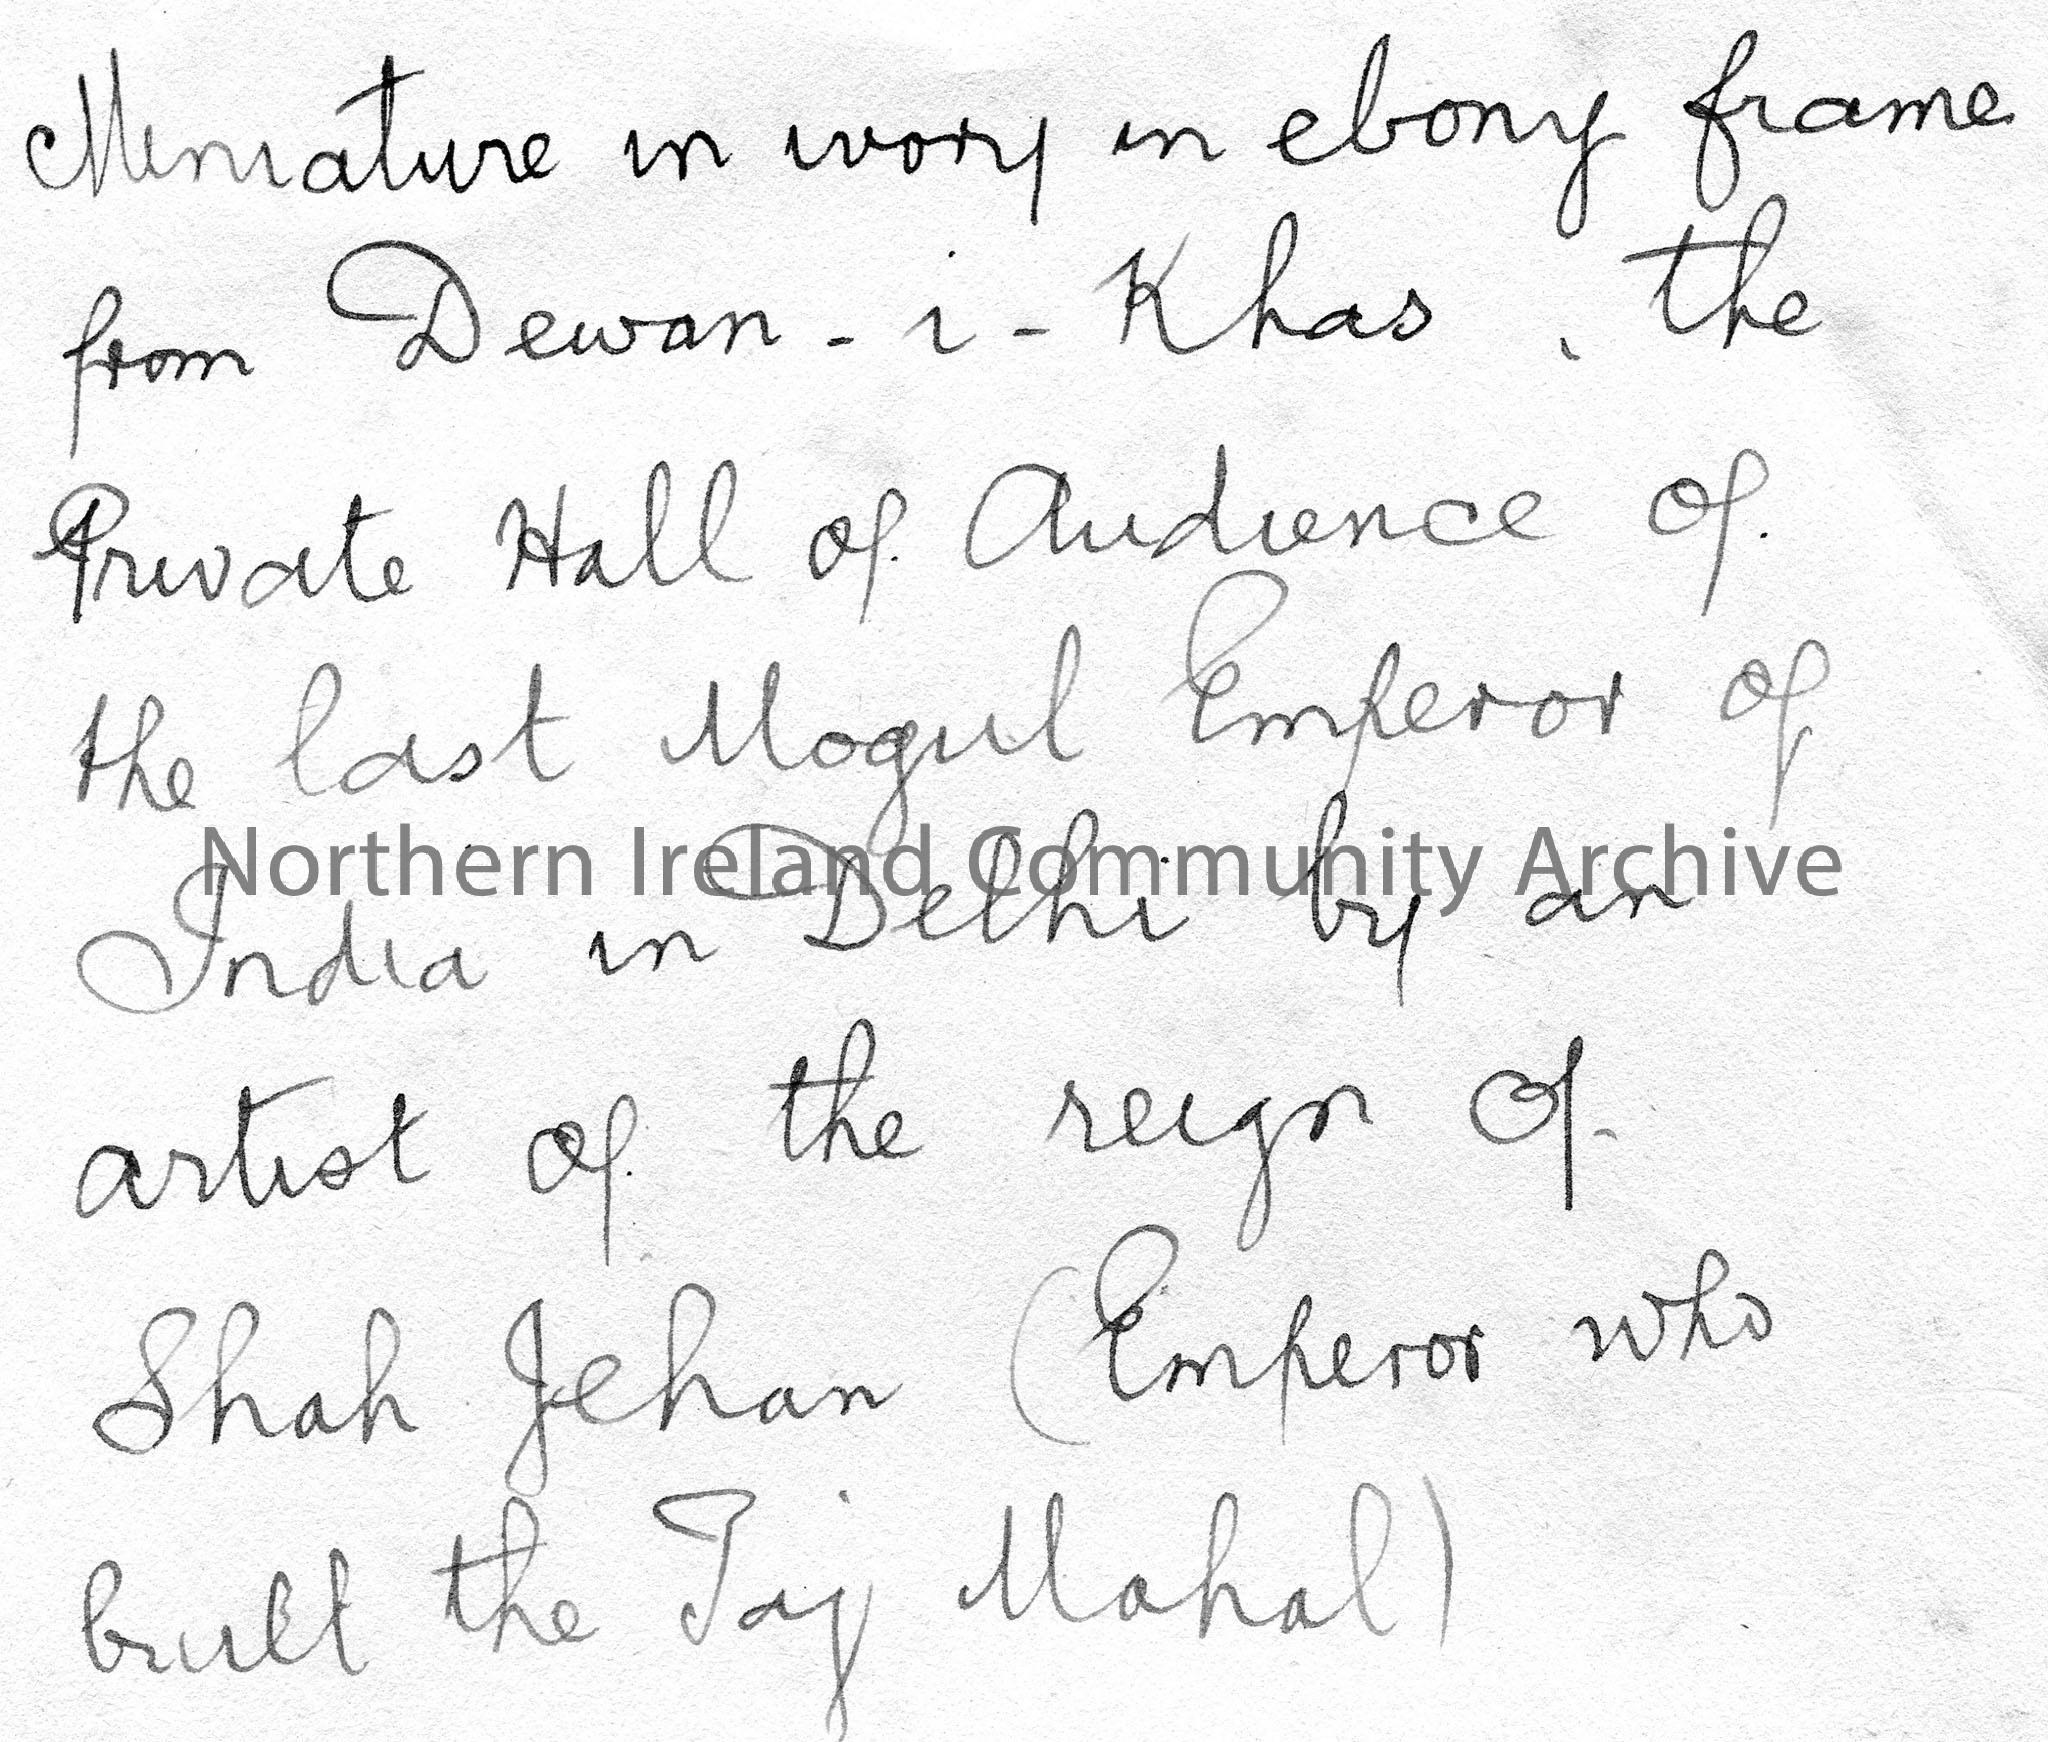 Miniature in ivory in ebony frame
from Dewan - i - Khas, the
Private Hall of Audience of
the last Mogul Emperor of
Northern Ireland Community Archive
India in Delhi by an
artist of the reign of
Shah Jehan (Emperor who
built the Taj Mahal)